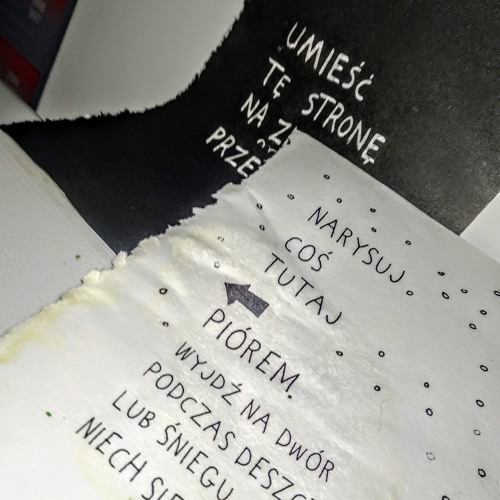 UMIEŚĆ
TĘ STRONĘ
NA
NARYSUJ
COŚ
TUTAJ
PIÓREM.
WYJDŹ NA DWÓR
PODCZAS
LUB ŚNIEGU
NIECH